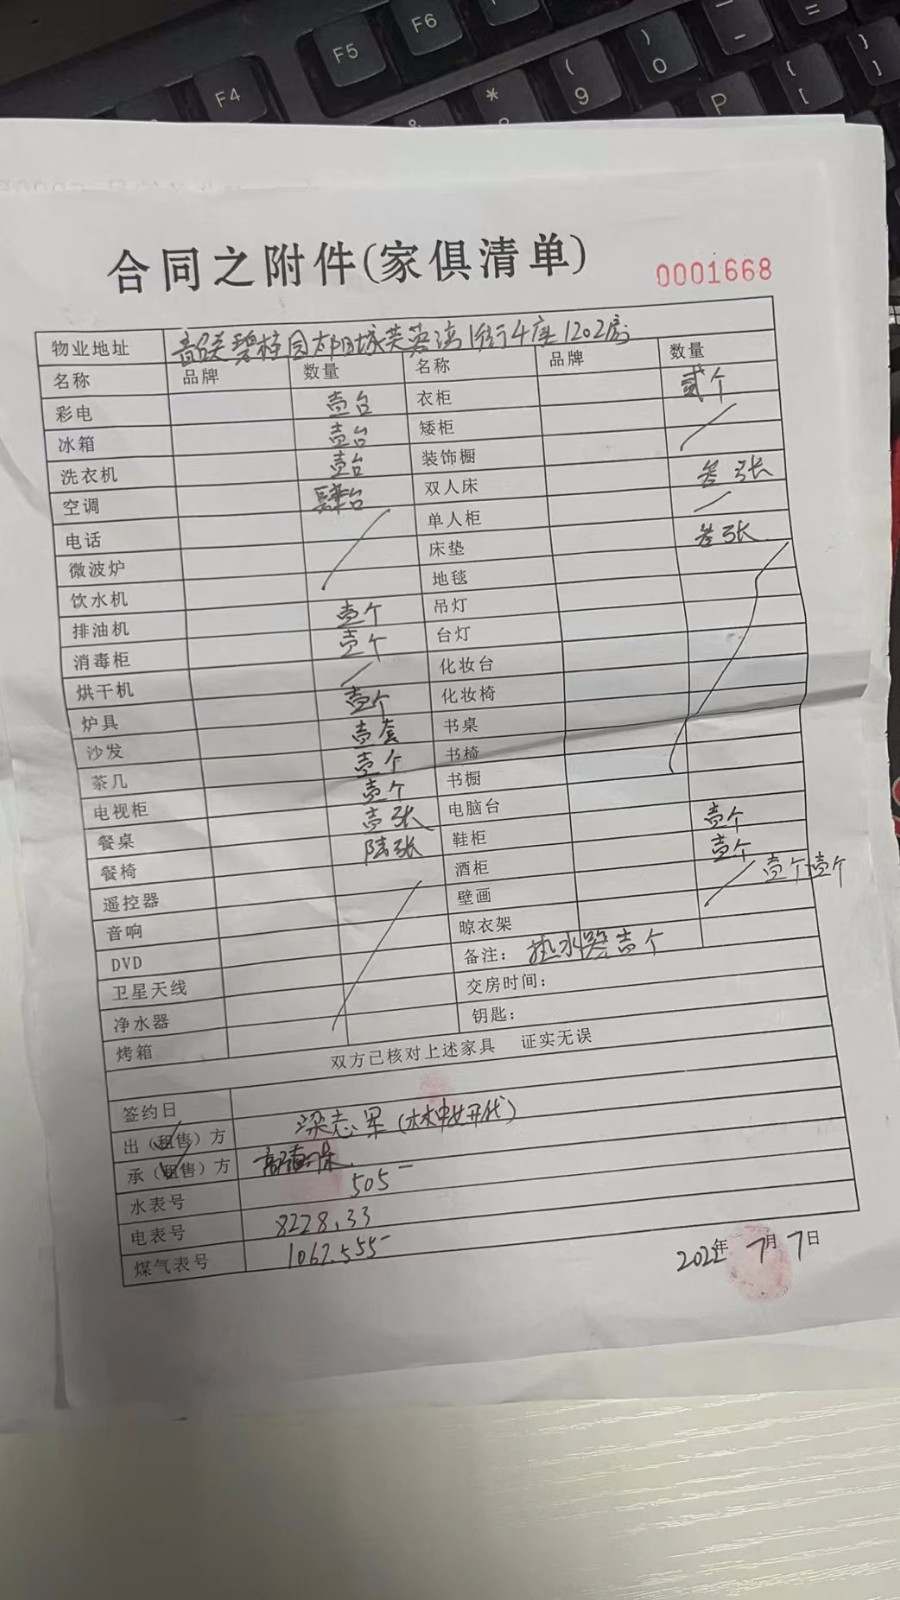 F4 F5 F6
* 9 ( 0 ) P - = [ { ] }
合同之附件(家俱清单)
0001668
物业地址 韶关碧桂园太阳城芙蓉湾1街4座1202房
名称 品牌 数量 名称 品牌 数量
彩电 壹台 衣柜 贰个
冰箱 壹台 矮柜
洗衣机 壹台 装饰橱
空调 肆台 双人床 叁张
电话 单人柜
微波炉 床垫 叁张
饮水机 地毯
排油机 壹个 吊灯
消毒柜 壹个 台灯
烘干机 化妆台
炉具 壹个 化妆椅
沙发 壹套 书桌
茶几 壹个 书椅
电视柜 壹个 书橱
餐桌 壹张 电脑台
餐椅 陆张 鞋柜 壹个
遥控器 酒柜 壹个
音响 壁画 壹个 壹个
DVD 晾衣架
卫星天线 备注: 热水器壹个
净水器 交房时间:
烤箱 钥匙:
双方已核对上述家具 证实无误
签约日
出(租售)方 梁志军
承(租售)方
水表号 505
电表号 8228.33
煤气表号 1062.555
2022年7月7日